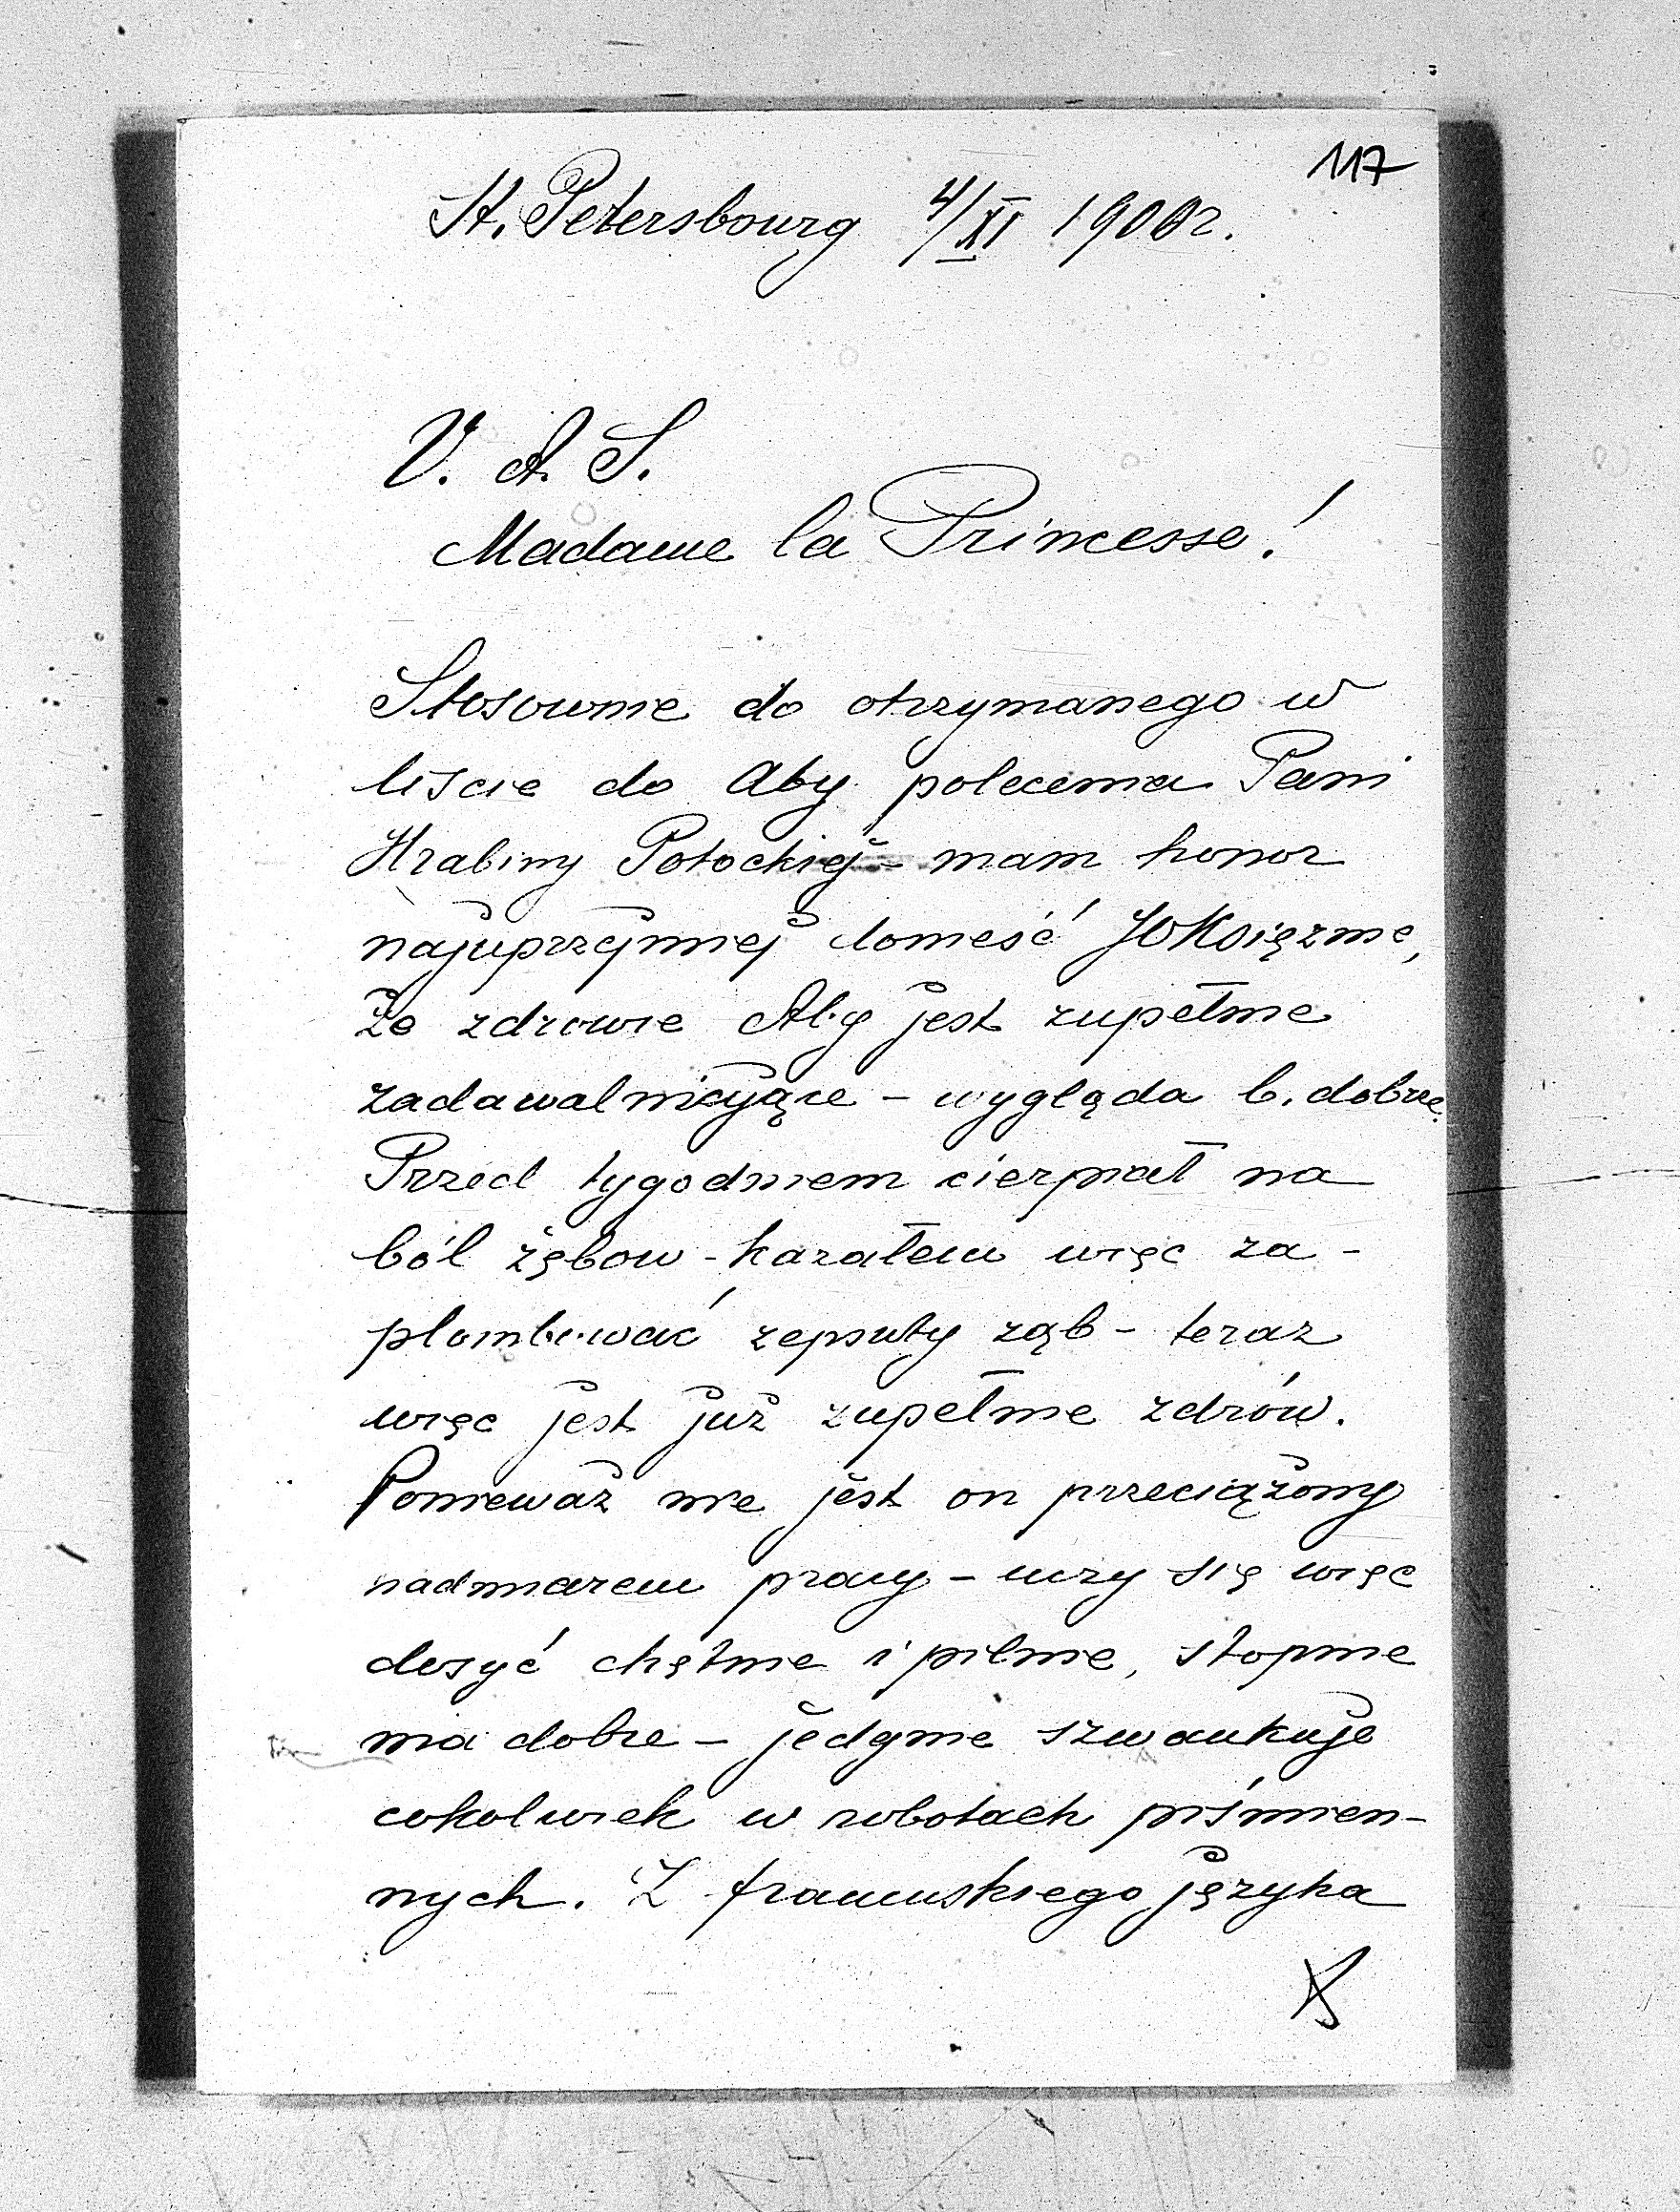 117
St. Petersbourg 4/XI 1900r.
V. A. S.
Madame la Princesse!
Stosownie do otrzymanego w
liście do Aby polecenia Pani
Hrabiny Potockiej - mam honor
najuprzejmiej donieść JOKsiężnie,
że zdrowie Aby jest zupełnie
zadawalniające - wygląda b. dobrze.
Przed tygodniem cierpiał na
ból zębow - kazałem więc za-
plombować zepsuty ząb - teraz
więc jest już zupełnie zdrów.
Ponieważ nie jest on przeciążony
nadmiarem pracy - uczy się więc
dosyć chętnie i pilnie, stopnie
ma dobre - jedynie szwankuje
cokolwiek w robotach piśmien-
nych. Z francuskiego języka